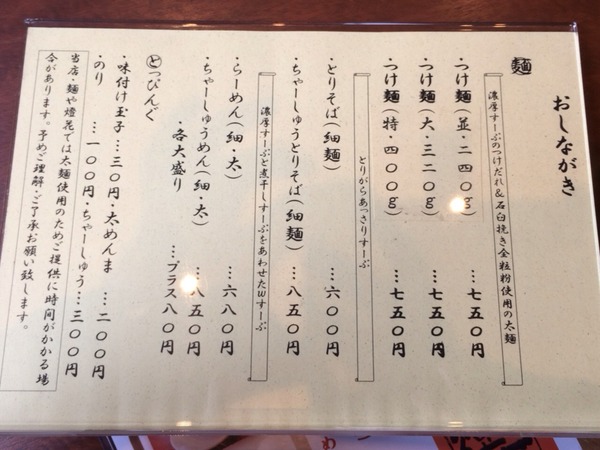 おしながき
麺
濃厚すーぷのつけだれ&石臼挽き全粒粉使用の太麺
・つけ麺(並・二四〇g) …七五〇円
・つけ麺(大・三二〇g) …七五〇円
・つけ麺(特・四〇〇g) …七五〇円
とりがらあっさりすーぷ
・とりそば(細麺) …六〇〇円
・ちゃーしゅうとりそば(細麺) …八五〇円
濃厚すーぷと煮干しすーぷをあわせたWすーぷ
・らーめん(細・太) …六八〇円
・ちゃーしゅうめん(細・太) …八五〇円
・各大盛り …プラス八〇円
とっぴんぐ
・味付け玉子 …一三〇円・太めんま …二〇〇円
・のり …一〇〇円・ちゃーしゅう…三〇〇円
当店・麺や燈花では太麺使用のためご提供に時間がかかる場
合があります。予めご理解・ご了承お願い致します。